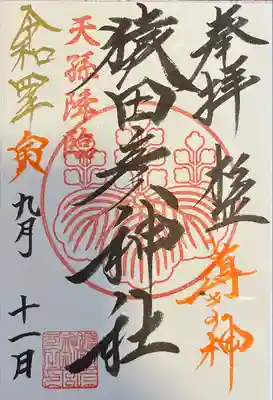 奉拝
猿田彦神社
天孫降臨
令和四年寅
九月十一日